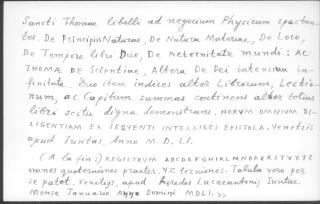 Sancti Thomae libelli ad negocium Physicum spectan-
tes. De Principiis Naturae, De Natura Materiae, De Loco,
De Tempore libri Duo, De Aeternitate mundi: AC
THOMÆ DE Scientiae, Altera De Dei intensiva in-
finitate. Duo item indices alter Librorum, Lectio-
num, ac Capitum summas continens alter totius
libri scitu digna demonstrans, HORVM OMNIVM DI-
LIGENTIAM EX SEQVENTI INTELLIGES EPISTOLA. Venetiis
apud Iuntas, Anno M.D.LI.
(A la fin:) REGISTRUM ABCDEFGHIKLMNOPQRSTVXYZ
omnes quaterniones praeter YZ terniones. Tabula vero per
se patet. Venetijs, apud Heredes Lucaeantonij Iuntae
Mense Ianuario Domini MDLI.>>